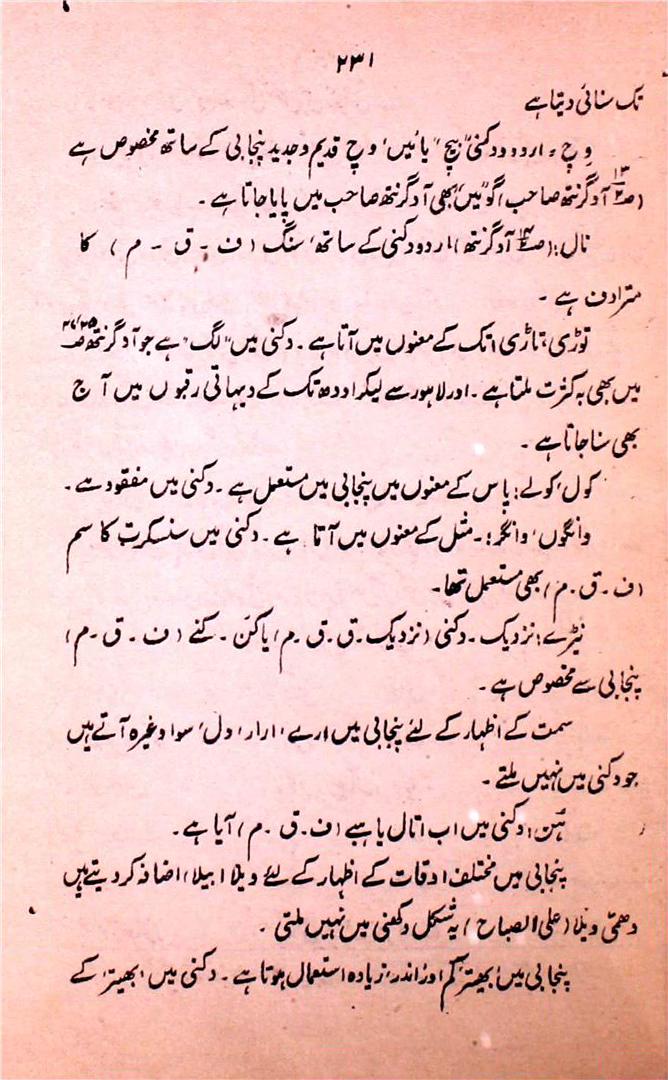 ۲۳۱
تک سنائی دیتا ہے
وِچ، اردو ودکنی "بیچ" یا "میں" وچ قدیم وجدید پنجابی کے ساتھ مخصوص ہے
آدگرنتھ صاحب) گو "میں" بھی آدگرنتھ صاحب میں پایا جاتا ہے۔
نال: (آدگرنتھ) اردو دکنی کے ساتھ، سنگ (ف - ق - م) کا
مترادف ہے۔
توڑی، تاڑی (تک کے معنوں میں آتا ہے۔ دکنی میں "لگ" ہے جو آدگرنتھ
میں بھی بہ کثرت ملتا ہے۔ اور لاہور سے لیکر اودھ تک کے دیہاتی رقبوں میں آج
بھی سنا جاتا ہے۔
کول، کولے: پاس کے معنوں میں پنجابی میں مستعمل ہے۔ دکنی میں مفقود ہے۔
وانگوں، وانگر:۔ مثل کے معنوں میں آتا ہے۔ دکنی میں سنسکرت کا سم
(ف - ق - م) بھی مستعمل تھا۔
نیڑے: نزدیک۔ دکنی (نزدیک۔ ق۔ ق۔ م) یا کَن۔ کنے (ف - ق - م)
پنجابی سے مخصوص ہے۔
سمت کے اظہار کے لئے پنجابی میں ارے، ارار، ول، سوا وغیرہ آتے ہیں
جو دکنی میں نہیں ملتے۔
ہُن: دکنی میں اب اتال یا ہبے (ف۔ ق۔ م) آیا ہے۔
پنجابی میں مختلف اوقات کے اظہار کے لئے ویلا (بیلا) اضافہ کر دیتے ہیں
دھمّی ویلا (علی الصباح) یہ شکل دکھنی میں نہیں ملتی۔
پنجابی میں 'بھیتر' کم اور 'اندر' زیادہ استعمال ہوتا ہے۔ دکنی میں 'بھیتر' کے